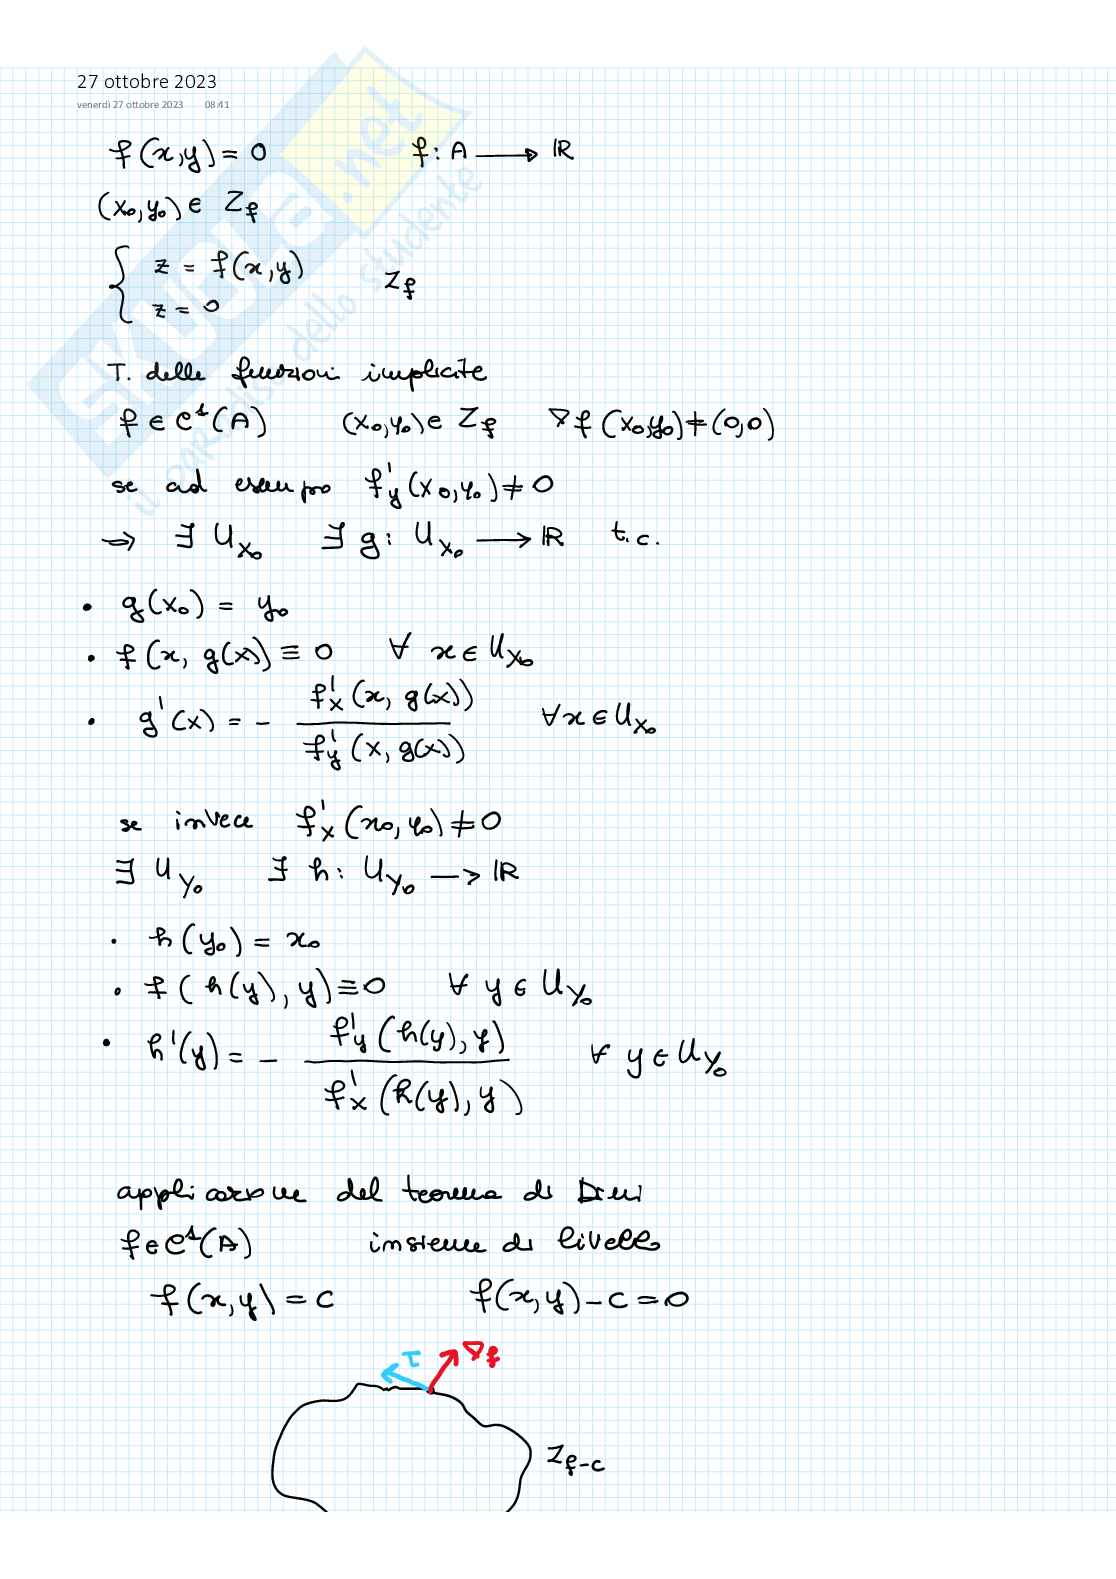 27 ottobre 2023
venerdì 27 ottobre 2023 08:41
f(x,y) = 0 f: A ⟶ ℝ
(x₀,y₀) ∈ Z_f
{ z = f(x,y)
z = 0 Z_f
T. delle funzioni implicite
f ∈ C¹(A) (x₀,y₀) ∈ Z_f ∇f(x₀,y₀) ≠ (0,0)
se ad esempio f'_y(x₀,y₀) ≠ 0
⇒ ∃ U_x₀ ∃ g: U_x₀ ⟶ ℝ t.c.
• g(x₀) = y₀
• f(x, g(x)) ≡ 0 ∀ x ∈ U_x₀
• g'(x) = - f'_x(x, g(x)) / f'_y(x, g(x)) ∀ x ∈ U_x₀
se invece f'_x(x₀,y₀) ≠ 0
∃ U_y₀ ∃ h: U_y₀ ⟶ ℝ
• h(y₀) = x₀
• f(h(y), y) ≡ 0 ∀ y ∈ U_y₀
• h'(y) = - f'_y(h(y), y) / f'_x(h(y), y) ∀ y ∈ U_y₀
applicazione del teorema di Dini
f ∈ C¹(A) insieme di livello
f(x,y) = c f(x,y) - c = 0
τ ∇f
Z_f-c
SKUOLA.net
il paradiso dello studente